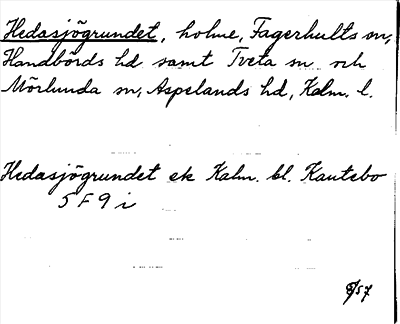 Hedasjögrundet, holme, Fagerhults sn,
Handbörds hd samt Tveta sn och
Mörlunda sn, Aspelands hd, Kalm. l.
Hedasjögrundet ek Kalm. bl. Kantebo
5 F 9 i
/57